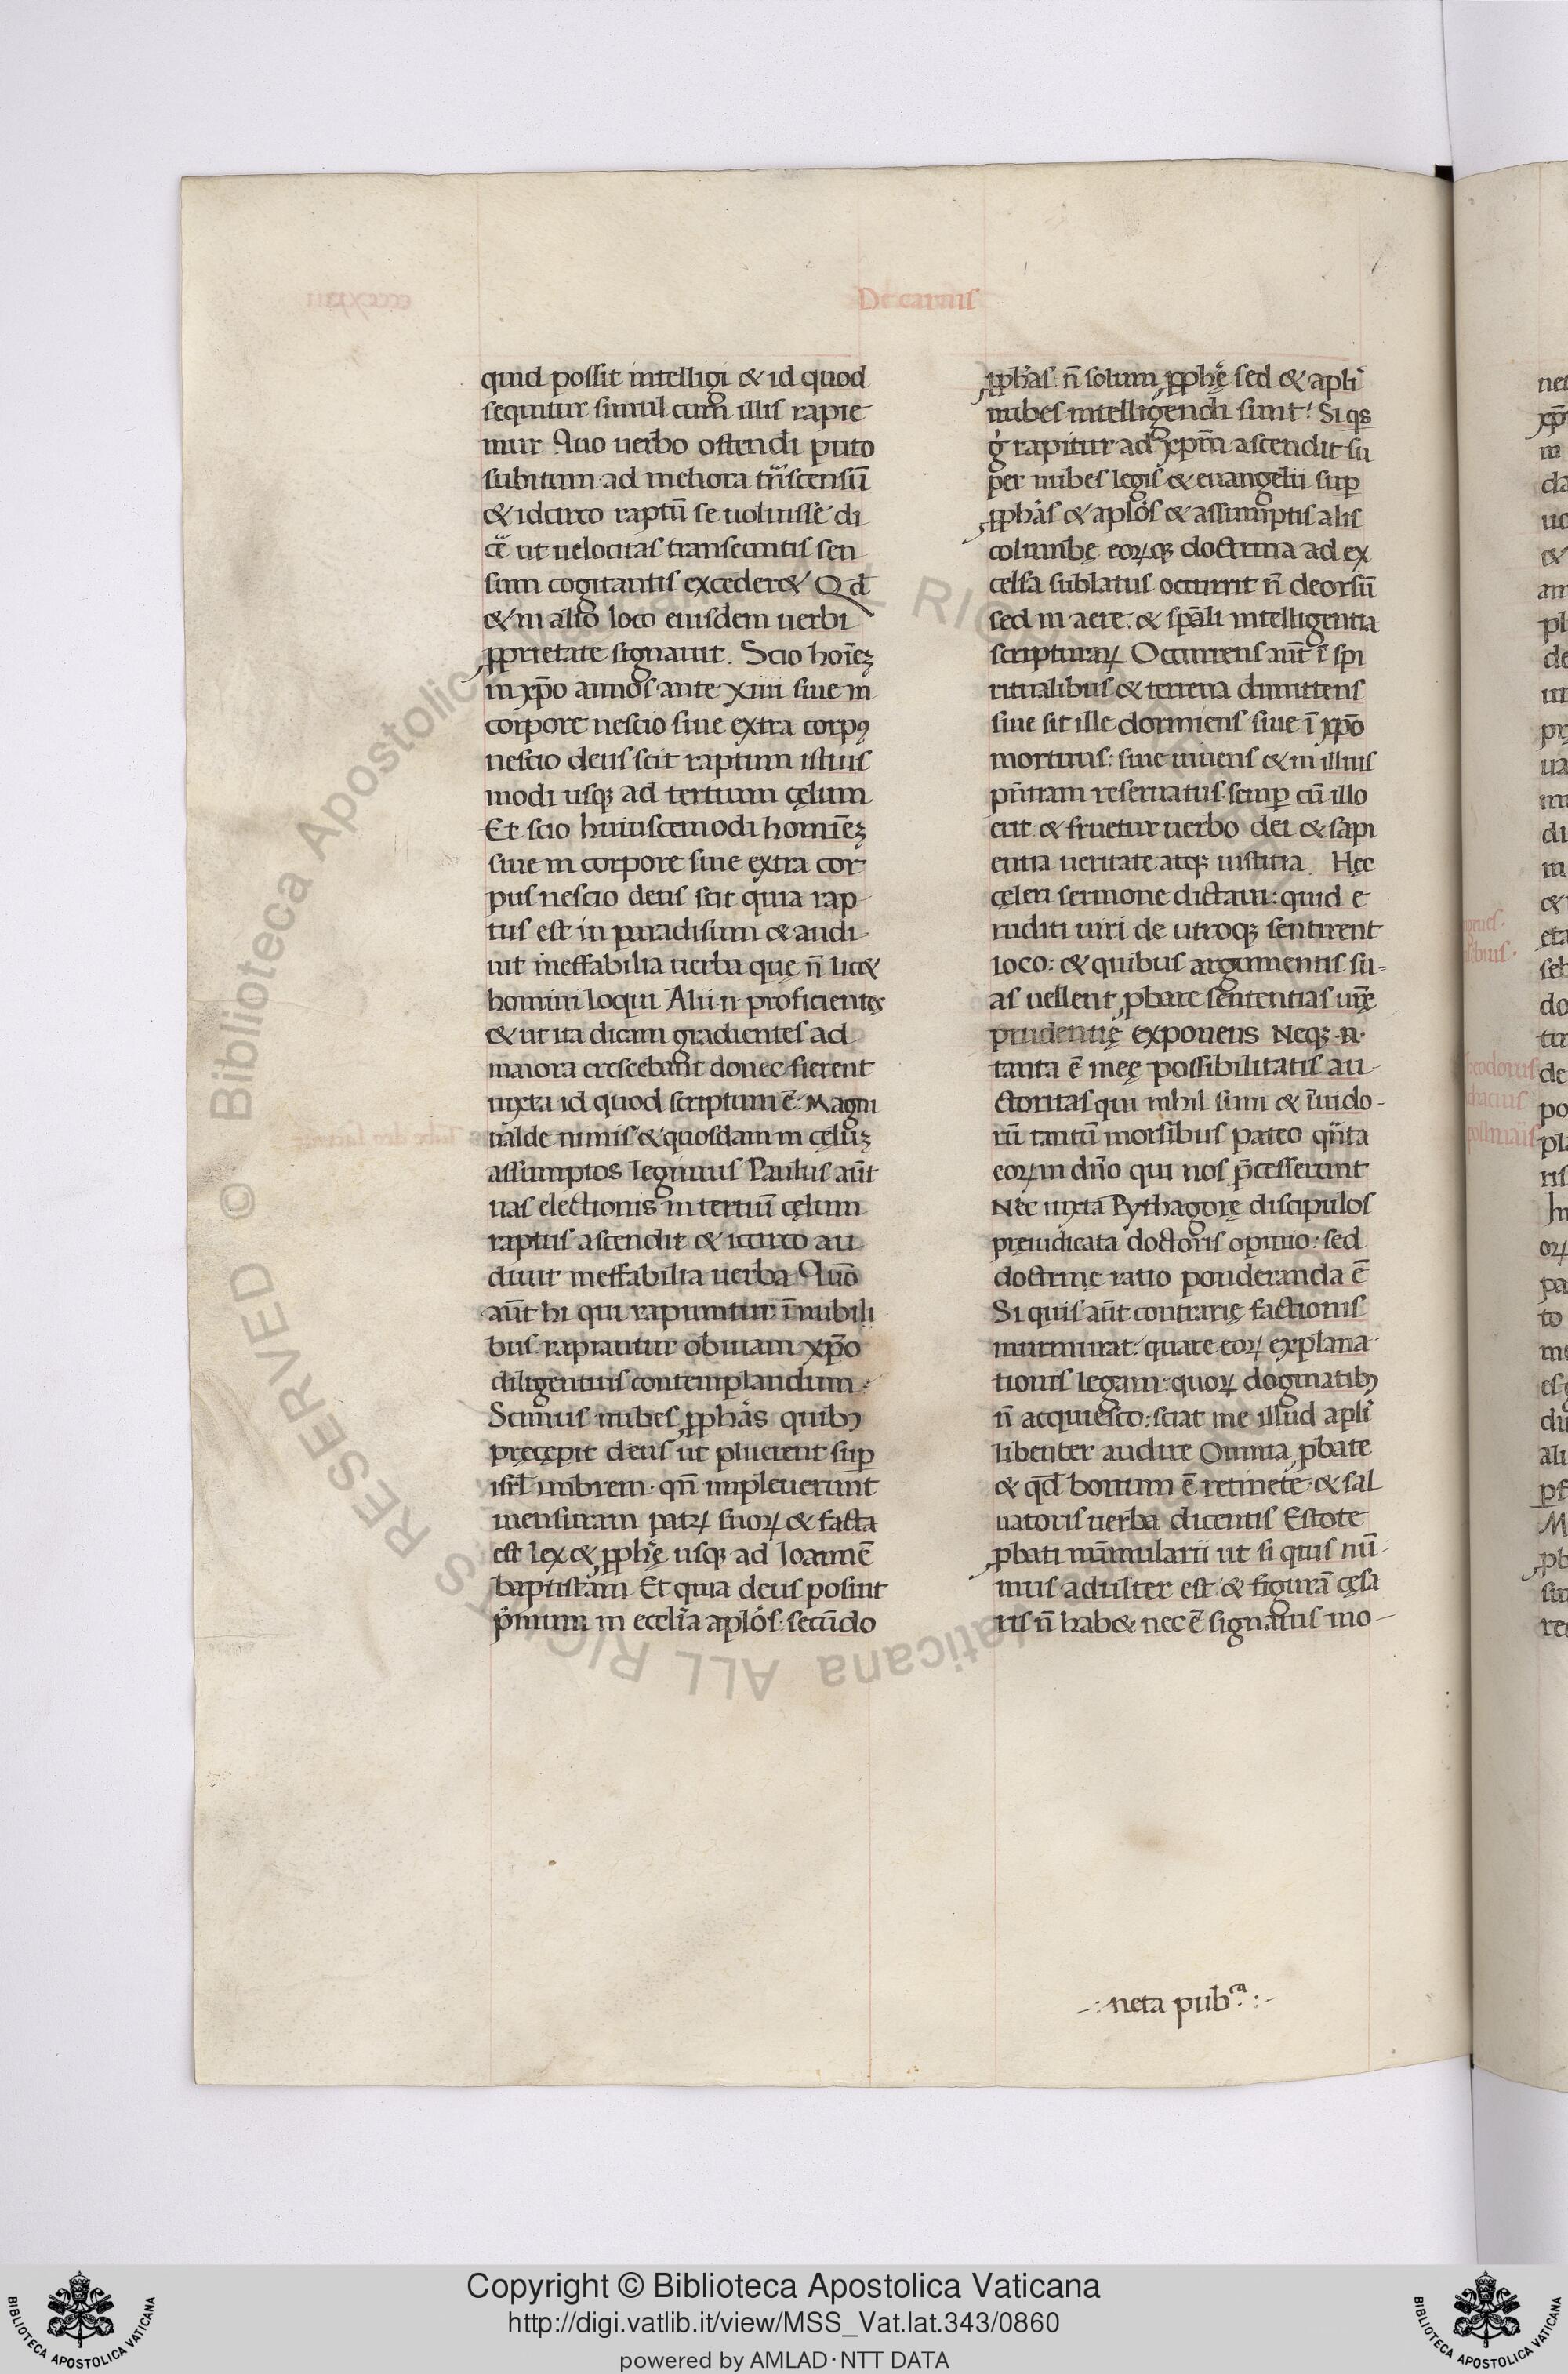 De carnis
quid possit intelligi & id quod
sequitur simul cum illis rapie
mur Quo uerbo ostendi puto
subitum ad meliora tn̄scensū
& idcirco raptū se uoluisse di
cē ut uelocitas transeuntis sen
sum cogitantis exceder& Qđ
& in alto loco eiusdem uerbi
ꝓprietate signauit. Scio hoīeꝫ
in xp̄o annos ante xiiii siue in
corpore nescio siue extra corpꝯ
nescio deus scit raptum istius
modi usqꝫ ad tertium cęlum
Et scio huiuscemodi homīeꝫ
siue in corpore siue extra cor
pus nescio deus scit quia rap
tus est in paradisum & audi
uit ineffabilia uerba quę n̄ lic&
homini loqui Alii .n. proficientes
& ut ita dicam gradientes ad
maiora crescebant donec fierent
iuxta id quod scriptum ē. Magni
ualde nimis & quosdam in cęluꝫ
assumptos legimus Paulus aūt
uas electionis in tertiū cęlum
raptus ascendit & iccirco au
diuit ineffabilia uerba Quō
aūt hi qui rapiuntur ī nubili
bus rapiantur obuiam xp̄o
diligentius contemplandum:
Scimus nubes ꝓphās quibꝯ
pręcępit deus ut pluerent suꝑ
isrl̄ imbrem. qn̄ impleuerunt
mensuram patꝝ suoꝝ & facta
est lex & ꝓphę usqꝫ ad Ioannē
baptistam Et quia deus posuit
p̄mum in eccl̄ia aplōs. secūdo
ꝓphās. n̄ solum ꝓphę sed & apl̄i
nubes intelligendi sunt! Si qs
g̊ rapitur ad xp̄m ascendit su
per nubes legis & euangelii suꝑ
ꝓphās & aplōs & assumptis alis
columbę eoꝝqꝫ doctrina ad ex
celsa sublatus occurrit n̄ deorsū
sed in aere. & sp̄ali intelligentia
scripturaꝝ Occurrens aūt ī spi
ritualibus & terrena dimittens
siue sit ille dormiens siue ī xp̄o
mortuus: siue uiuens & in illius
pn̄tiam reseruatus. semꝑ cū illo
erit. & fruetur uerbo dei & sapi
entia ueritate atqꝫ iustitia. Hęc
cęleri sermone dictaui: quid e
ruditi uiri de utroqꝫ sentirent
loco: & quibus argumentis su-
as uellent ꝓbare sententias ur̄ę
prudentię exponens Neqꝫ .n.
tanta ē meę possibilitatis au
ctoritas qui nihil sum & īuido-
rū tantū morsibus pateo qn̄ta
eoꝝ in dn̄o qui nos p̄cesserunt
Nec iuxta Pythagorę discipulos
pręiudicata doctoris opinio: sed
doctrinę ratio ponderanda ē
Si quis aūt contrarię factionis
murmurat: quare eoꝝ explana
tionis legam: quoꝝ dogmatibꝯ
n̄ acquiesco: sciat me illud apl̄i
libenter audire Omnia ꝓbate
& qđ bonum ē retinete. & sal
uatoris uerba dicentis Estote
ꝓbati nūmularii ut si quis nū
mus adulter est & figurā cęsa
ris n̄ hab& nec ē signatus mo-
-:neta pub.ᵃ:-
Copyright © Biblioteca Apostolica Vaticana
http://digi.vatlib.it/view/MSS_Vat.lat.343/0860
powered by AMLAD·NTT DATA
BIBLIOTECA APOSTOLICA VATICANA
BIBLIOTECA APOSTOLICA VATICANA